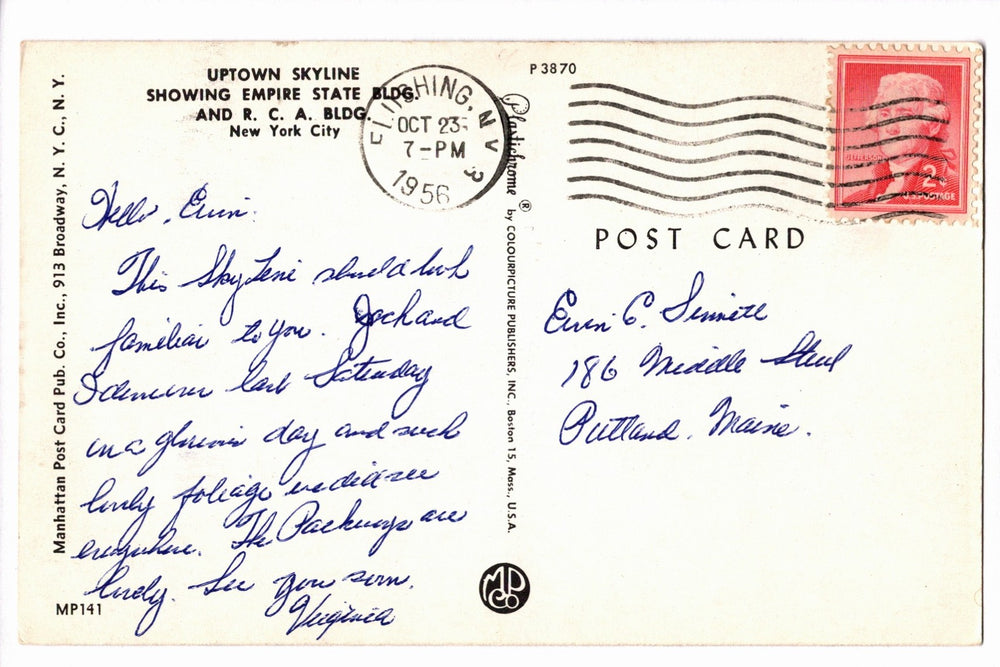 UPTOWN SKYLINE
SHOWING EMPIRE STATE BLDG.
AND R. C. A. BLDG.
New York City
Manhattan Post Card Pub. Co., Inc., 913 Broadway, N. Y. C., N. Y.
Hello, Erwin.
This Skyline should look
familiar to you. Jack and
I drove down last Saturday
in a glorious day and such
lovely foliage we did see
everywhere. The Parkways are
lovely. See you soon.
Virginia
MP141
FLUSHING, N Y
OCT 23
7-PM
1956
3
Plastichrome ® by COLOURPICTURE PUBLISHERS, INC., Boston 15, Mass., U.S.A.
MP Co
P3870
JEFFERSON
2¢
U.S. POSTAGE
POST CARD
Erwin C.
186 Middle Street
Portland, Maine.